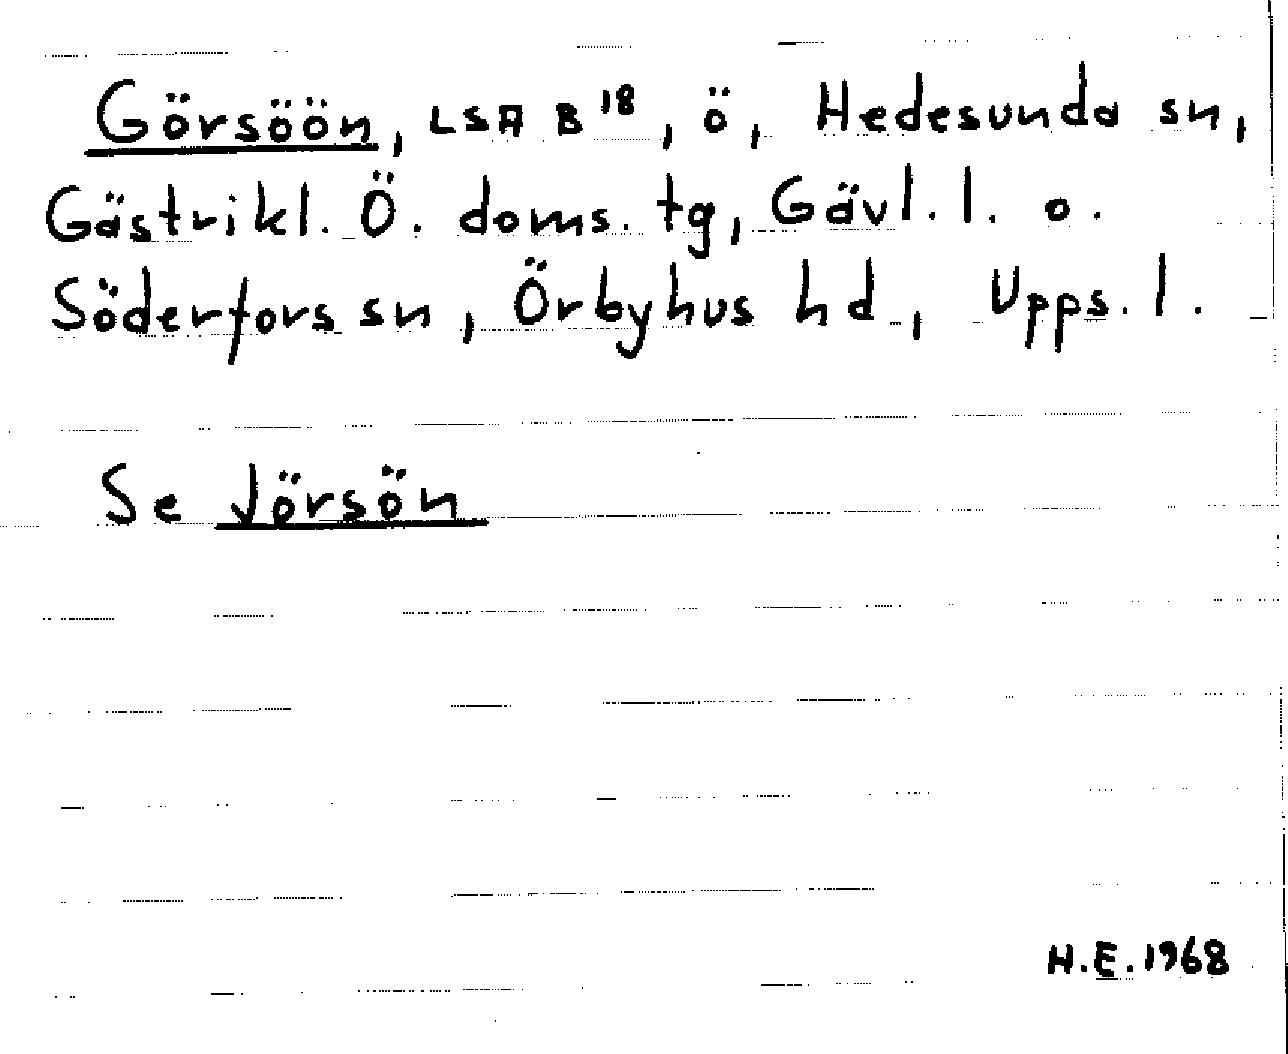 Görsöön, LSA B 18, ö, Hedesunda sn,
Gästrikl. Ö. doms. tg, Gävl. l. o.
Söderfors sn, Örbyhus hd., Upps. l.
Se Jörsön
H.E. 1968